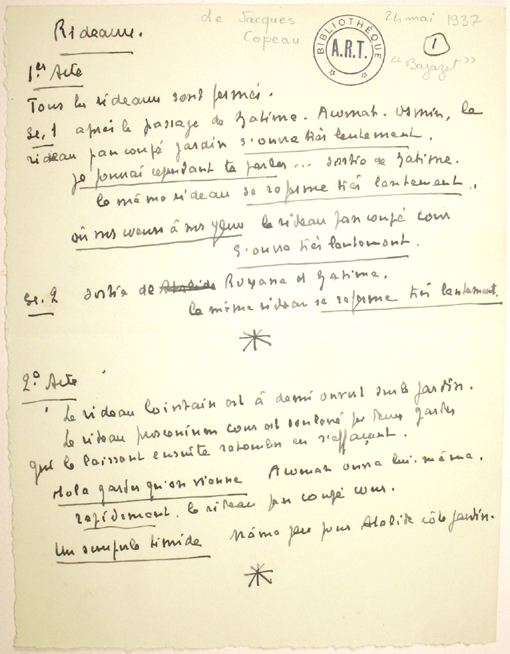 de Jacques
Copeau
BIBLIOTHÈQUE
A.R.T.
24 mai 1937
1
"Bajazet"
Rideaux.
1er Acte
Tous les rideaux sont fermés.
Sc. 1 après le passage de Zatime. Acomat. Osmin, le
rideau pan coupé jardin s'ouvre très lentement.
Je pourrai cependant te parler... sortie de Zatime.
le même rideau se referme très lentement.
le rideau pan coupé cour
s'ouvre très lentement.
Sc. 2 sortie de Atalide Roxane et Zatime.
le même rideau se referme très lentement.
2e Acte
Le rideau lointain est à demi ouvert sur le jardin.
Le rideau proscenium cour est soulevé par deux gardes
qui le laissent ensuite retomber en s'effaçant.
Hola gardes qu'on vienne Acomat ouvre lui-même.
rapidement. le rideau pan coupé cour.
Un scrupule timide Même jeu pour Atalide côté jardin.